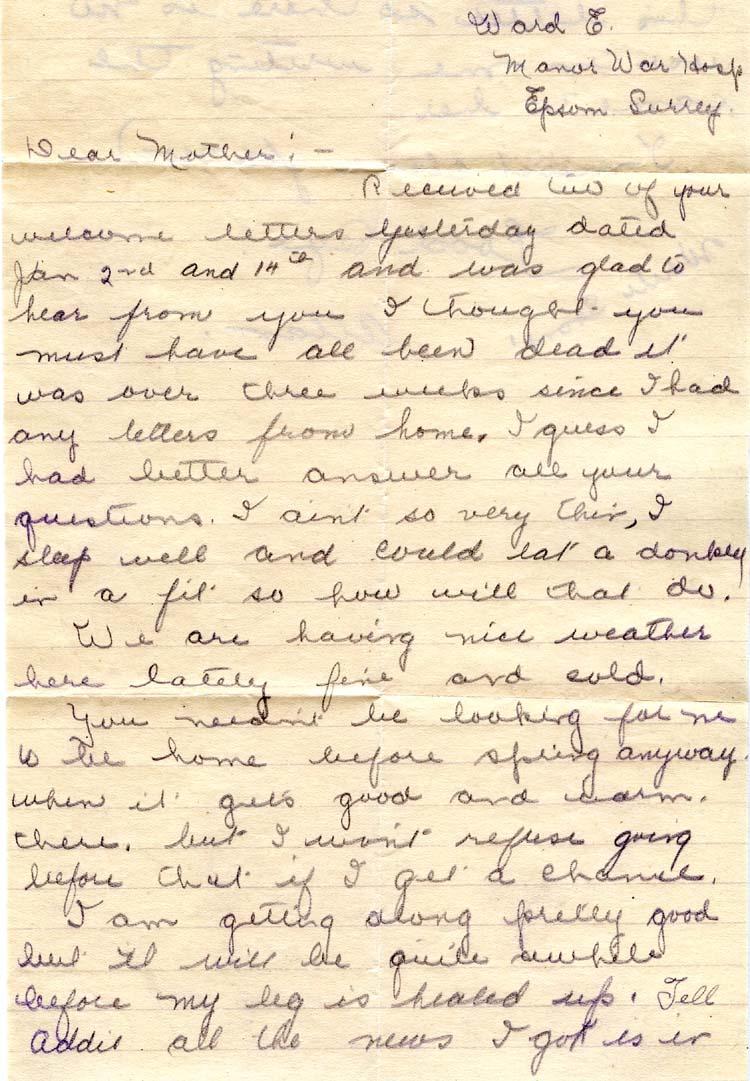 Ward E.
Manor War Hosp
Epsom Surrey.
Dear Mother; -
Received two of your
welcome letters yesterday dated
Jan 2nd and 14th and was glad to
hear from you I thought you
must have all been dead it
was over three weeks since I had
any letters from home. I guess I
had better answer all your
questions. I aint so very thin, I
sleep well and could eat a donkey
in a fit so how will that do.
We are having nice weather
here lately fine and cold.
You needn't be looking for me
to be home before spring anyway.
when it gets good and warm.
there. but I won't refuse going
before that if I get a chance.
I am getting along pretty good
but it will be quite awhile
before my leg is healed up. Tell
Addie all the news I got is in